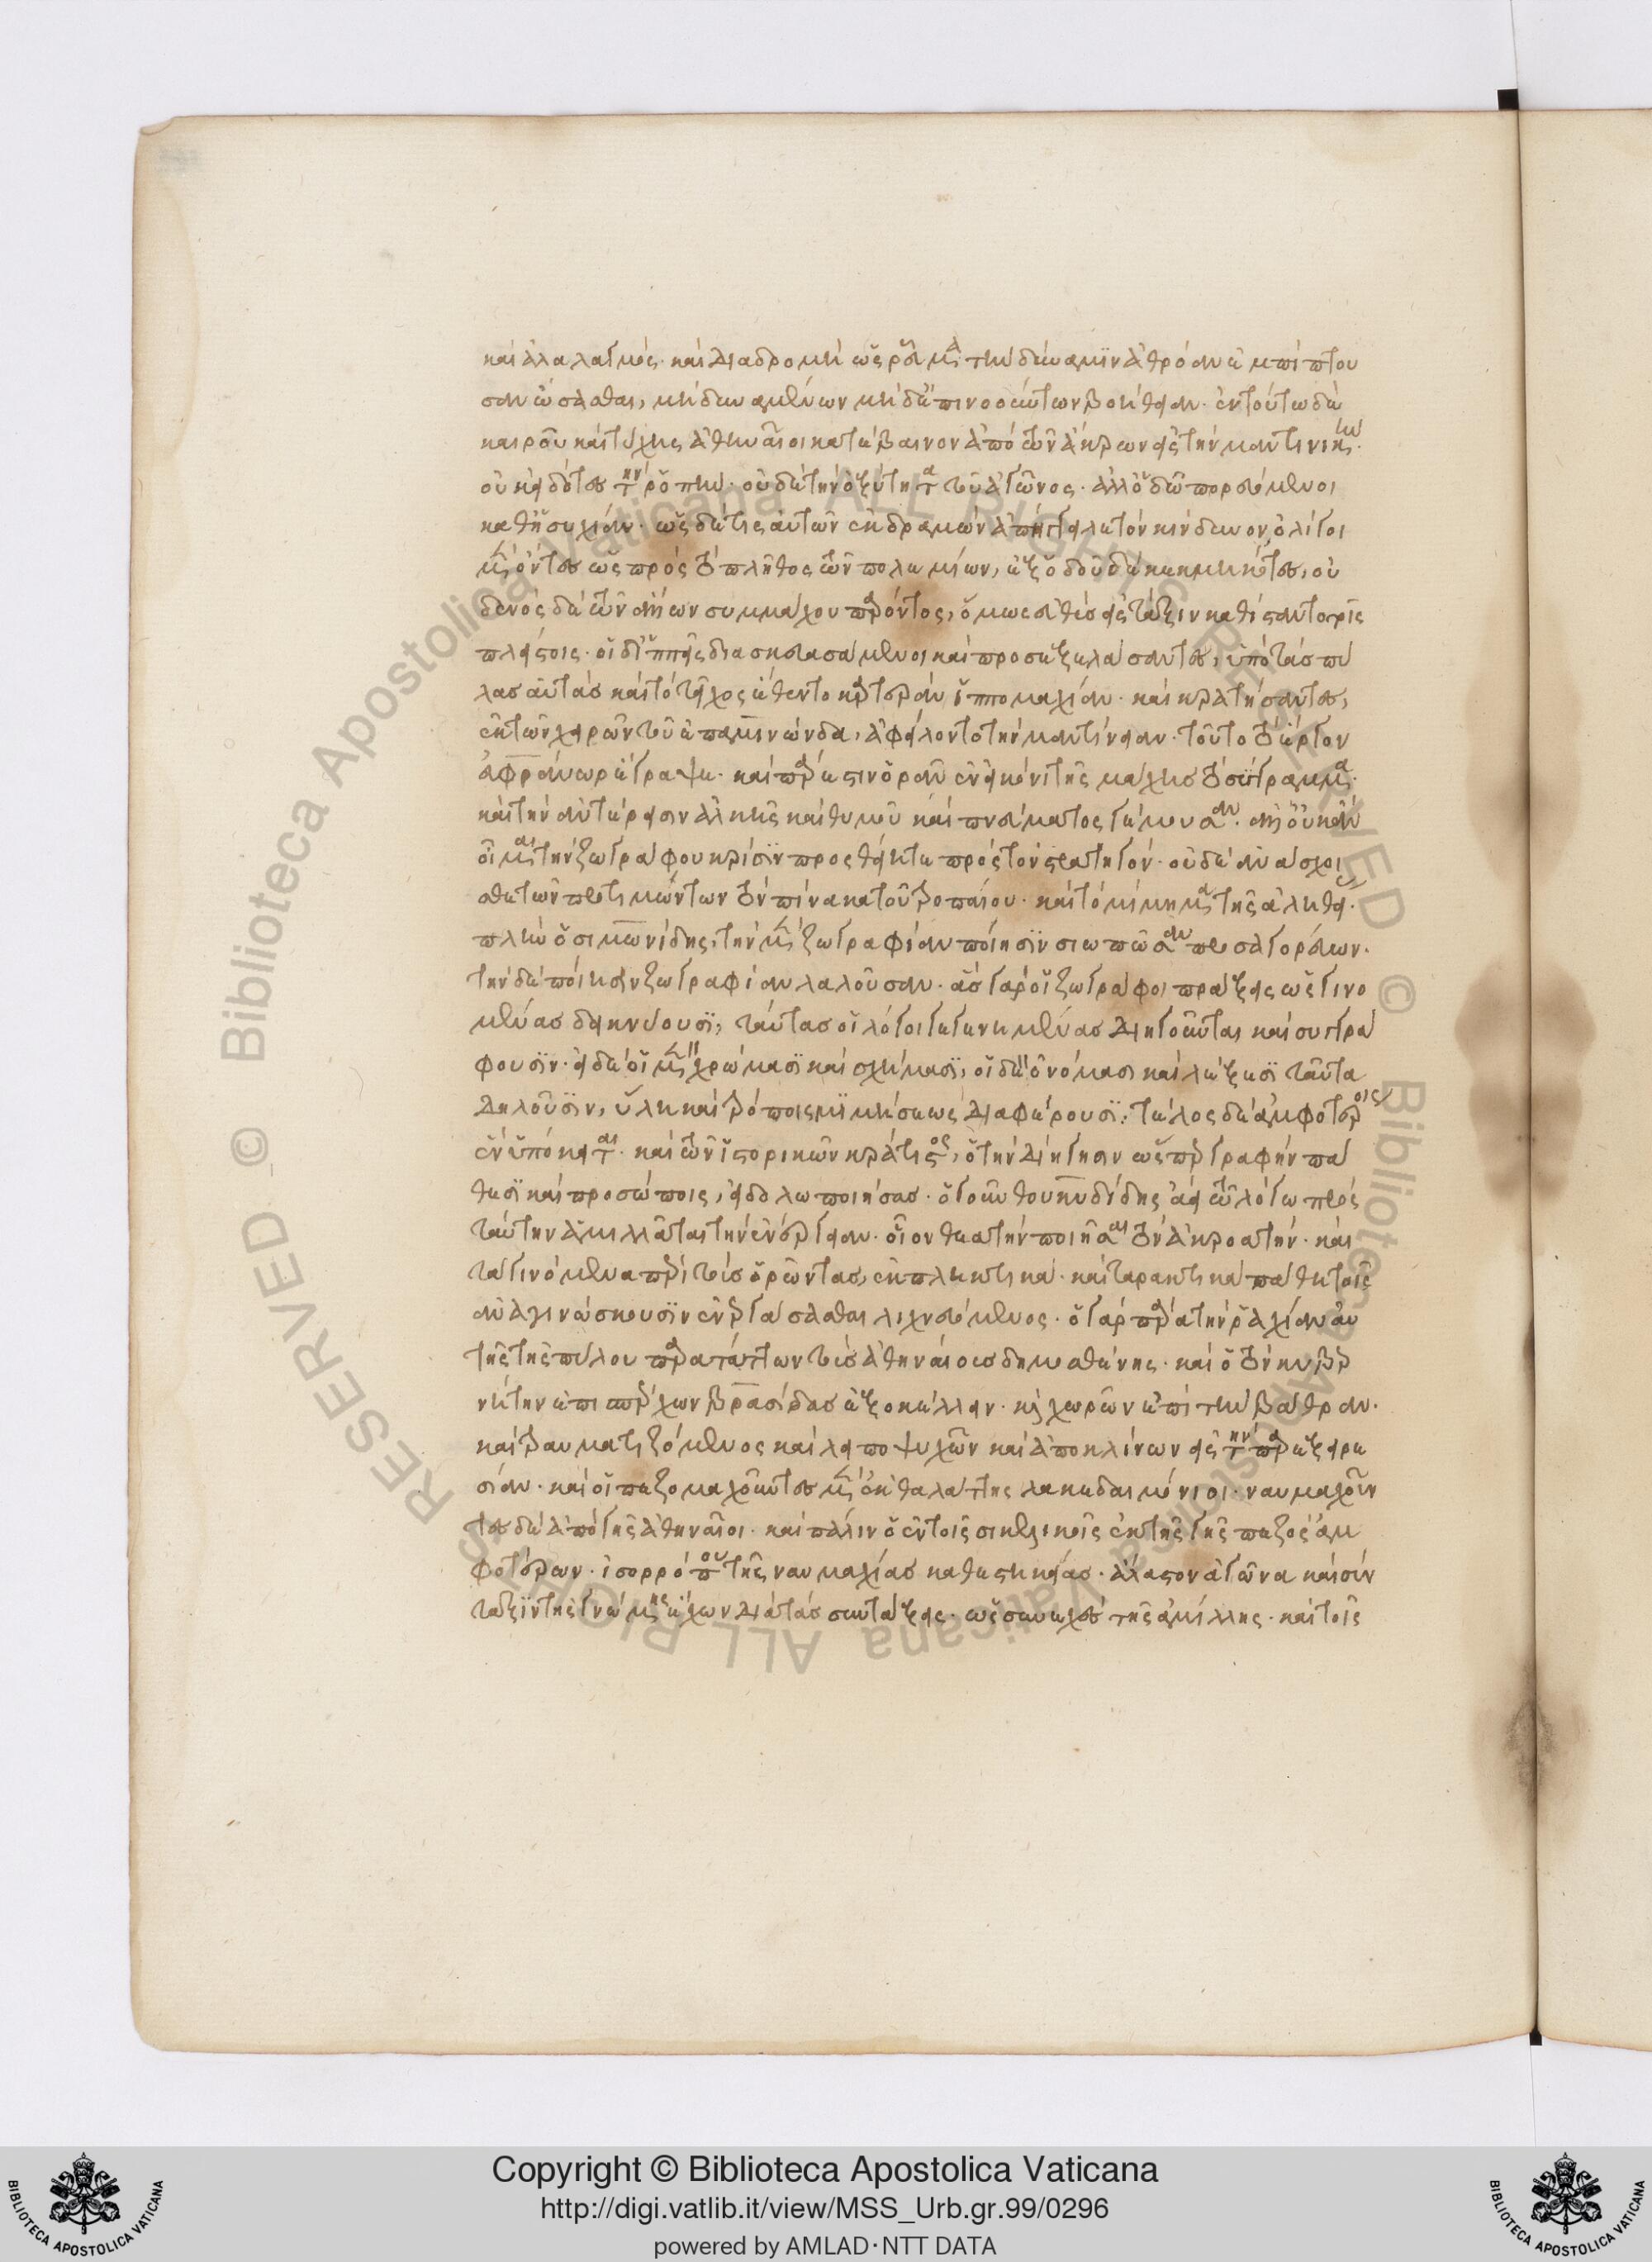 καὶ ἀλαλαγμός· καὶ διαδρομὴ ὡς ῥεύματι τὴν δύναμιν ἀθρόαν ἐμπίπτου
σαν ὤσασθαι, μὴ δυναμένων μηδέ τινος αὐτῶν βοήθειαν· ἐν τούτω δὲ
καιροῦ καὶ τύχης ἀθηναῖοι κατέβαινον ἀπὸ τῶν ἄκρων εἰς τὴν μαντινικήν·
οὐκ εἰδότες τὴν ῥοπὴν· οὐδὲ τὴν ὀξύτητα τοῦ ἀγῶνος· ἀλλ' ὁδῶ πορευόμενοι
καθ' ἡσυχίαν· ὡς δέ τις αὐτῶν ἐκδραμὼν ἀπήγγειλε τὸν κίνδυνον, ὀλίγοι
μὲν ὄντες ὡς πρὸς τὸ πλῆθος τῶν πολεμίων, ἐξ ὁδοῦ δὲ κεκμηκότες, οὐ
δενὸς δὲ τῶν ἄλλων συμμάχου παρόντος, ὅμως εὐθὺς εἰς τάξιν καθίσταντο τοῖς
πλείστοις· οἱ δ' ἱππεῖς διασκευασάμενοι καὶ προσεξελάσαντες, ὑπὸ τὰς πύ
λας αὐτὰς καὶ τὸ τεῖχος ἔθεντο καρτερὰν ἱππομαχίαν· καὶ κρατήσαντες,
ἐκ τῶν χειρῶν τοῦ ἐπαμινώνδα, ἀφείλοντο τὴν μαντίνειαν· τοῦτο τὸ ἔργον
εὐφράνωρ ἔγραψε· καὶ πάρεστιν ὁρᾶν ἐν εἰκόνι τῆς μάχης τὸ σύγραμμα·
καὶ τὴν ἀντέρεισιν ἀλκῆς καὶ θυμοῦ καὶ πνεύματος γέμουσαν· ἀλλ' οὐκ ἂν
οἶμαι τὴν ζωγράφου κρίσιν προσθείητε πρὸς τὸν στρατηγόν· οὐδ' ἀνάσχοι
σθε τῶν προτιμώντων τὸν πίνακα τοῦ τροπαίου· καὶ τὸ μίμημα τῆς ἀληθεί·
πλὴν ὁ σιμωνίδης, τὴν μὲν ζωγραφίαν ποίησιν σιωπῶσαν προσαγορεύων·
τὴν δὲ ποίησιν ζωγραφίαν λαλοῦσαν· ἃς γὰρ οἱ ζωγράφοι πράξεις ὡς γινο
μένας δεικνύουσι, ταύτας οἱ λόγοι γεγενημένας διηγοῦνται καὶ συγγρά
φουσιν· εἰ δὲ οἱ μὲν χρώμασι καὶ σχήμασι, οἱ δὲ ὀνόμασι καὶ λέξεσι ταῦτα
δηλοῦσιν, ὕλη καὶ τρόποις μιμήσεως διαφέρουσι· τέλος δὲ ἀμφοτέροις
ἓν ὑπόκειται· καὶ τῶν ἱστορικῶν κράτιστος, ὁ τὴν διήγησιν ὡς περ γραφὴν πά
θεσι καὶ προσώποις, εἰδολωποιήσας· ὁ γοῦν θουκυδίδης ἀεὶ τῶ λόγω πρὸς
ταύτην ἁμιλλᾶται τὴν ἐνάργειαν· οἷον θεατὴν ποιῆσαι τὸν ἀκροατὴν· καὶ
τὰ γινόμενα περὶ τοὺς ὁρῶντας, ἐκπληκτικὰ· καὶ ταρακτικὰ πάθη τοῖς
ἀναγινώσκουσιν ἐνεργάσασθαι λιχνευόμενος· ὁ γὰρ παρὰ τὴν ῥαχίαν αὐ
τῆς τῆς πύλου παρατάττων τοὺς ἀθηναίους δημοσθένης· καὶ ὁ τὸν κυβερ
νήτην ἐπισπέρχων βρασίδας ἐξοκέλλειν· καὶ χωρῶν ἐπὶ τὴν βάθραν·
καὶ τραυματιζόμενος καὶ λειποψυχῶν καὶ ἀποκλίνων εἰς τὴν παρεξειρε
σίαν· καὶ οἱ πεζομαχοῦντες μὲν ἐκ θαλάττης λακεδαιμόνιοι· ναυμαχοῦν
τες δὲ ἀπὸ γῆς ἀθηναῖοι· καὶ πάλιν ὁ ἐν τοῖς σικελικοῖς ἐκ τῆς γῆς πεζὸς ἀμ
φοτέρων· ἰσορρόπου τῆς ναυμαχίας καθεστηκυίας· ἄλαστον ἀγῶνα καὶ σύν
ταξιν τῆς γνώμης ἔχων διὰ τὰς συντάξεις· ὡς συνεχοῦς τῆς ἁμίλλης· καὶ τοῖς
Copyright © Biblioteca Apostolica Vaticana
http://digi.vatlib.it/view/MSS_Urb.gr.99/0296
powered by AMLAD·NTT DATA
BIBLIOTECA APOSTOLICA VATICANA
BIBLIOTECA APOSTOLICA VATICANA
© Biblioteca Apostolica Vaticana ALL RIGHTS RESERVED © Biblioteca Apostolica Vaticana ALL RIGHTS RESERVED